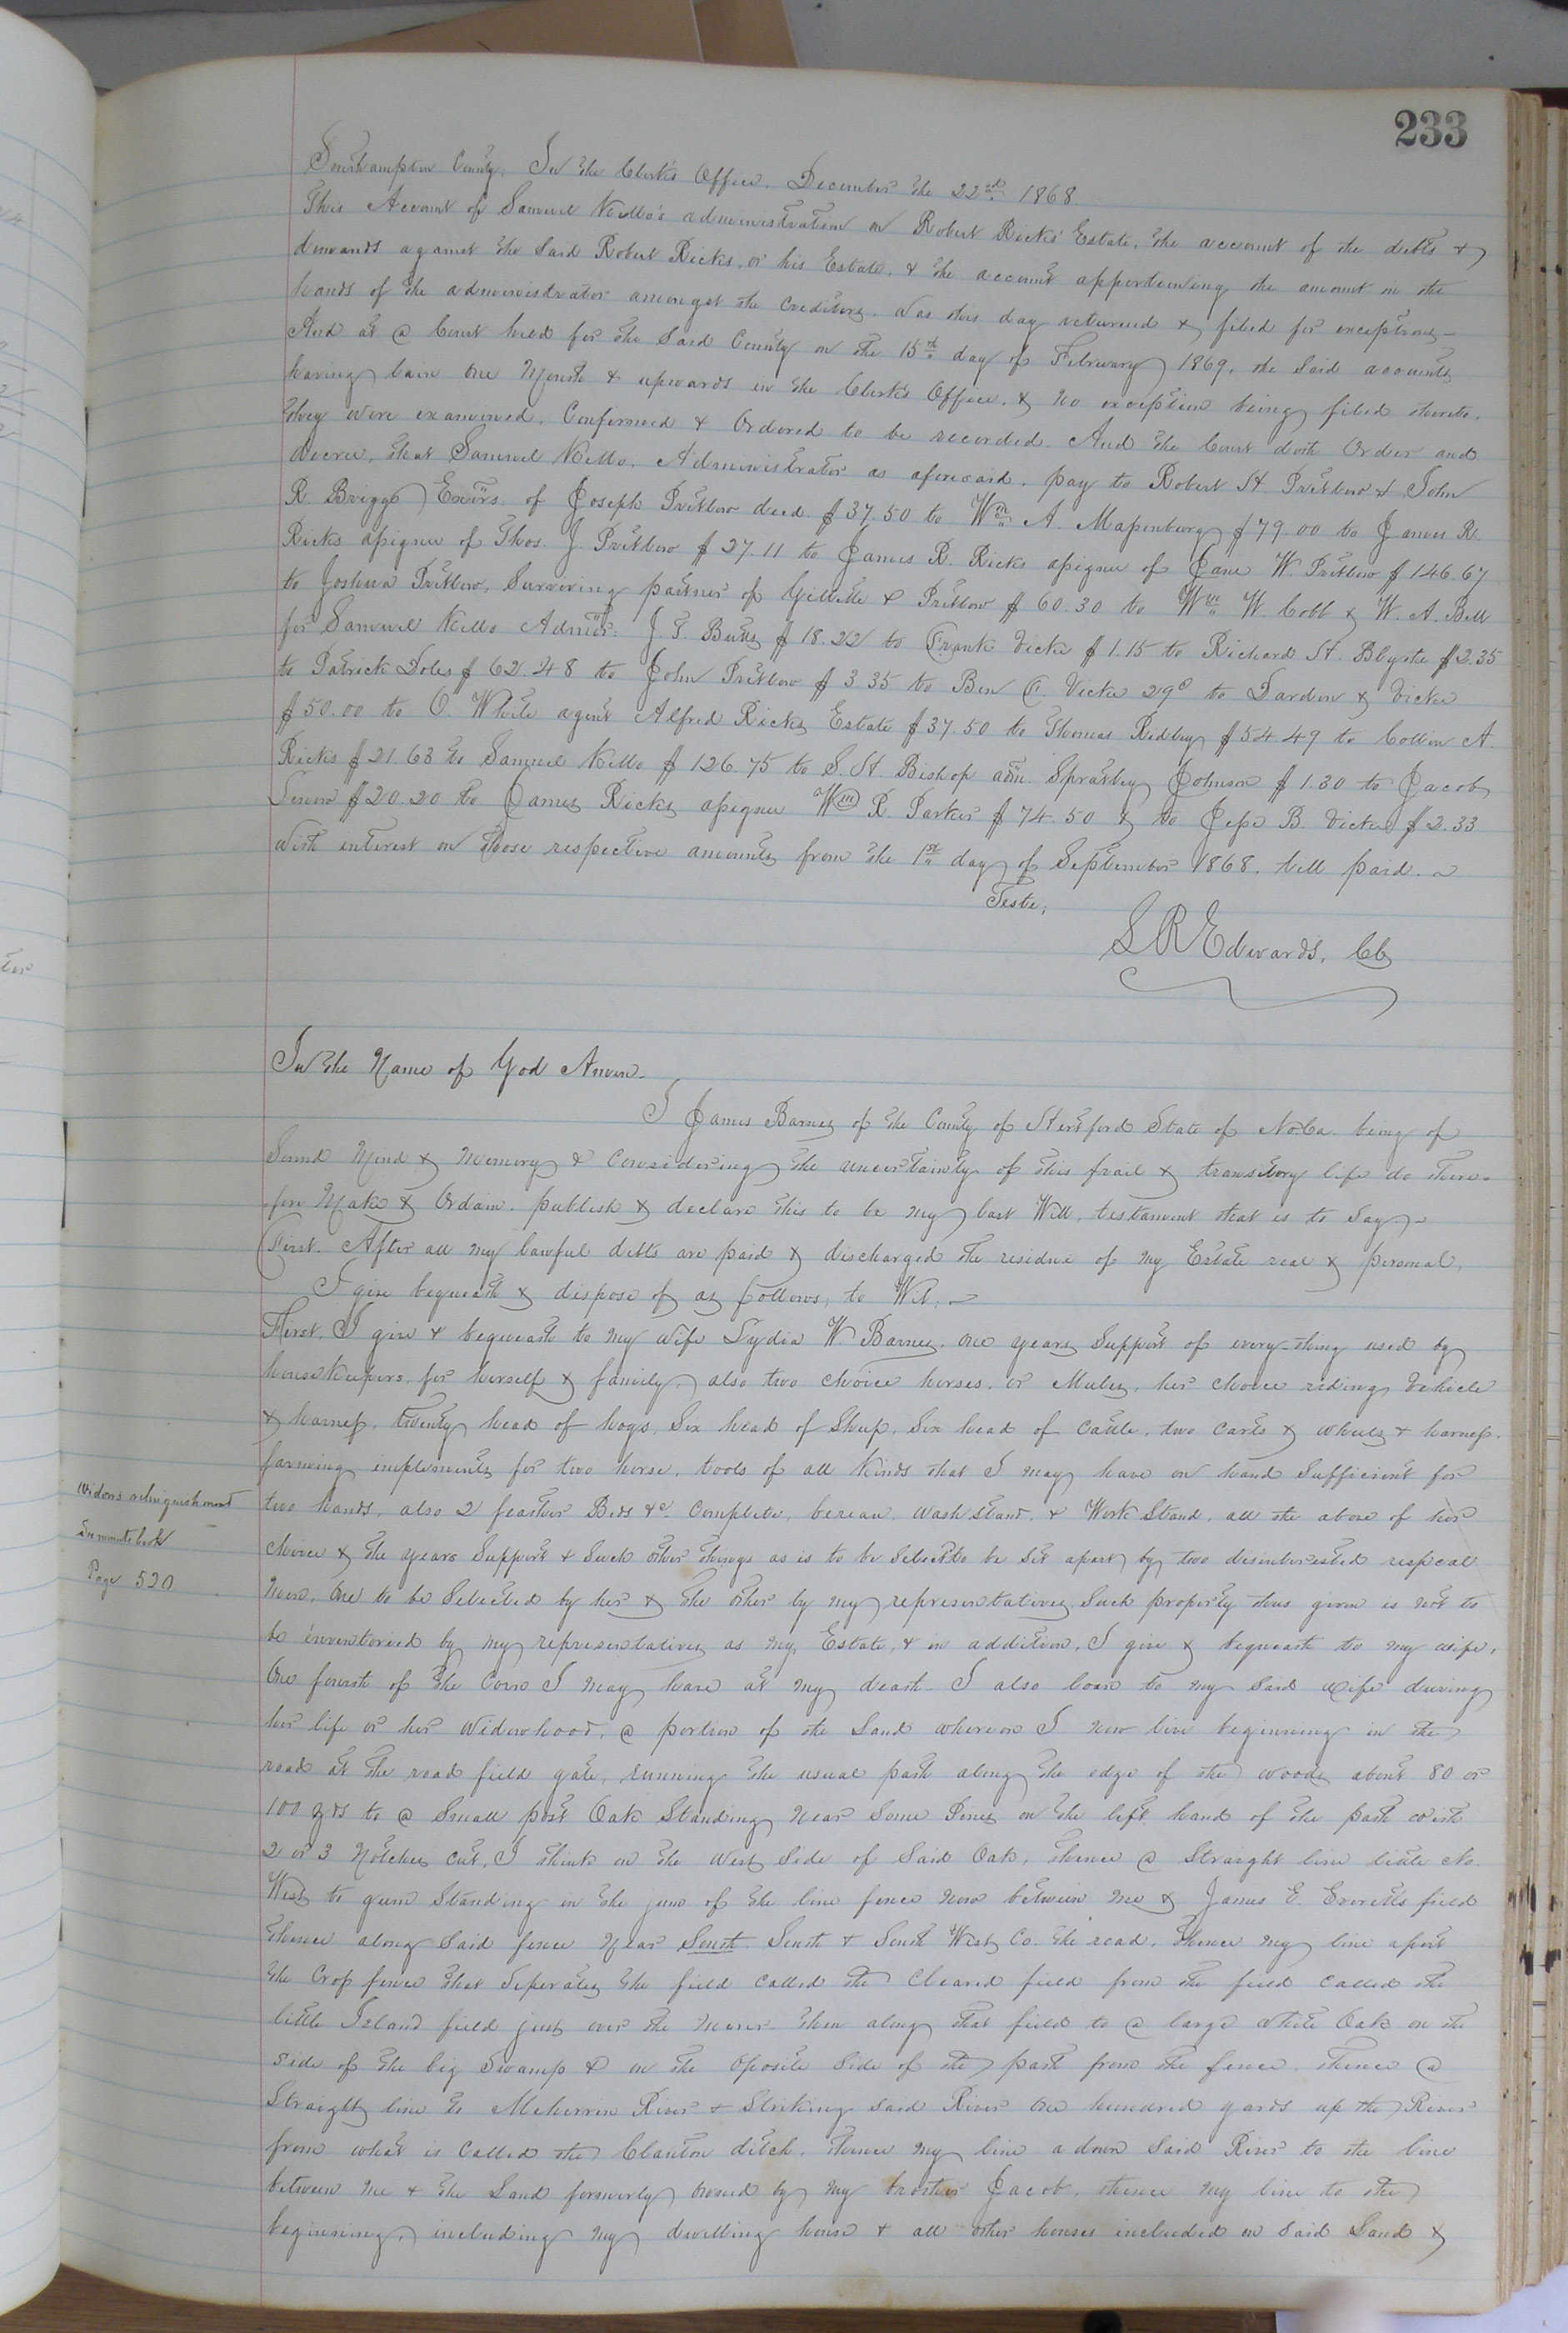 233
Southampton County, In the Clerk's Office, December the 22nd 1868
This Account of Samuel Kello's administration on Robert Ricks' Estate, the account of the debts &
demands against the said Robert Ricks, or his Estate, & the account apportioning the amount in the
hands of the administrator amongst the creditors, was this day returned & filed for exceptions_
And at a Court held for the said County on the 15th day of February 1869, the said accounts
having lain one Month & upwards in the Clerk's Office, & no exception being filed thereto,
they were examined, Confirmed & Ordered to be recorded. And the Court doth Order and
decree, that Samuel Kello, Administrator as aforesaid, pay to Robert H. Pretlow & John
R. Briggs Exors. of Joseph Pretlow decd. $37.50 to Wm. A. Mapenburg $79.00 to James R.
Ricks assignee of Thos. J. Pretlow $27.11 to James R. Ricks assignee of Jane W. Pretlow $146.67
to Joshua Pretlow, Surviving partner of Gillette & Pretlow $60.30 to Wm. W. Cobb & W. A. Bell
for Samuel Kello Admor. J. T. Butts $18.22 to Frank Vick $1.15 to Richard H. Blythe $2.35
to Patrick Doles $62.48 to John Pretlow $3.35 to Ben C. Vick 29c to Darden & Vick
$50.00 to O. White agent Alfred Ricks Estate $37.50 to Thomas Ridley $54.49 to Collin A.
Ricks $21.63 to Samuel Kello $126.75 to S. H. Bishop adm. Spratley Johnson $1.30 to Jacob
$20.20 to James Ricks assignee Wm R. Parker $74.50 & to Jesse B. Vick $2.33
With interest on those respective amounts from the 1st day of September 1868, till paid.
Teste,
L R Edwards, Clk
In the Name of God Amen_
I James Barnes of the County of Hertford State of No. Ca. being of
Sound Mind & Memory & Considering the uncertainty of this frail & transitory life do there=
fore Make & Ordain, publish & declare this to be my last Will, testament that is to say_
First. After all my lawful debts are paid & discharged the residue of my Estate real & personal,
I give bequeath & dispose of as follows, to Wit,_
First, I give & bequeath to my wife Lydia W. Barnes, one years Support of every-thing used by
house Keepers, for herself & family, also two choice horses, or Mules, her choice riding Vehicle
& harness, twenty head of hogs, Six head of Sheep, Six head of Cattle, two Carts & wheels & harness,
farming implements for two horse, tools of all Kinds that I may have on hand Sufficient for
two hands, also 2 feather Beds &c. Complete, bereau, Wash Stand, & Work Stand, all the above of her
choice & the years Support & Such other things as is to be Selected to be Set apart by two disinterested respctal
men, One to be Selected by her & the other by my representatives, Such property thus given is not to
be inventoried by my representatives as my Estate, & in addition, I give & bequeath to my wife,
One fourth of the Corn I may have at my death_ I also loan to my said wife during
her life or her Widowhood, a portion of the Land whereon I now live beginning in the
road at the road field gate, running the usual path along the edge of the woods about 80 or
100 yds to a Small post Oak Standing near Some Pines on the left hand of the path with
2 or 3 Notches cut, I think on the West Side of Said Oak, thence a Straight line little No.
West to gum Standing in the jam of the line fence now between me & James E. Everetts field
thence along Said fence Near South, South & South West, Co. the road, thence my line apart
the Crop fence that Seperates the field called the Cleared field from the field called the
little Island field just over the then along that field to a large White Oak on the
Side of the big Swamp & on the Oposite Side of the path from the fence, thence a
Straight line to Meherrin River & Striking said River one hundred yards up the River
from what is called the Clanton ditch, thence my line a down Said River to the line
between me & the Land formerly owned by my brother Jacob, thence my line to the
beginning, including my dwelling house & all other houses included on Said Land &
Widows relinquishment
Page 520